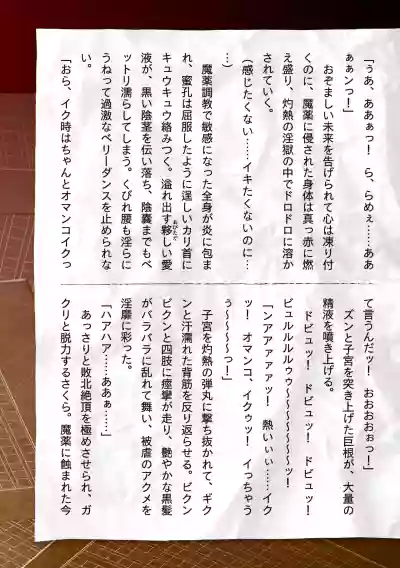 「うあ、ああぁっ！　ら、らめぇ……ああ
ぁぁンっ！」
　おぞましい未来を告げられて心は凍り付
くのに、魔薬に侵された身体は真っ赤に燃
え盛り、灼熱の淫獄の中でドロドロに溶か
されていく。
（感じたくない……イキたくないのに…
…）
　魔薬調教で敏感になった全身が炎に包ま
れ、蜜孔は屈服したように逞しいカリ首に
キュウキュウ絡みつく。溢れ出す夥しい愛
液が、黒い陰茎を伝い落ち、陰嚢までもベ
ットリ濡らしてしまう。くびれ腰も淫らに
うねって過激なベリーダンスを止められな
い。
「おら、イク時はちゃんとオマンコイクっ
て言うんだッ！　おおおおぉっ！」
　ズンと子宮を突き上げた巨根が、大量の
精液を噴き上げる。
　ドビュッ！　ドビュッ！　ドビュッ！
ビュルルルルゥゥ〜〜〜〜〜〜〜ッ！
「ンアアァァァッ！　熱いぃぃ……イク
ッ！　オマンコ、イクゥッ！　イっちゃう
ぅ〜〜〜〜っ！」
　子宮を灼熱の弾丸に撃ち抜かれて、ギク
ンと汗濡れた背筋を反り返らせる。ビクン
ビクンと四肢に痙攣が走り、艶やかな黒髪
がバラバラに乱れて舞い、被虐のアクメを
淫靡に彩った。
「ハアハア……ああぁ……」
　あっさりと敗北絶頂を極めさせられ、ガ
クリと脱力するさくら。魔薬に蝕まれた今